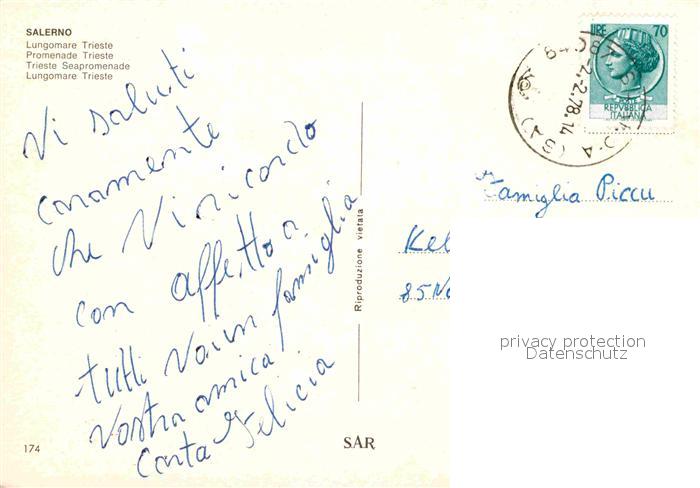 SALERNO
Lungomare Trieste
Promenade Trieste
Trieste Seapromenade
Lungomare Trieste
Vi saluti
caramente
che Vi ricordo
con affetto a
tutti Voi un famiglia
Vostra amica
Carta Felicia
174
Riproduzione vietata
SAR
LIRE 70
REPVBBLICA
ITALIANA
-2.-2.78.14
(SA)
Famiglia Piccu
Kel
85 No
privacy protection
Datenschutz